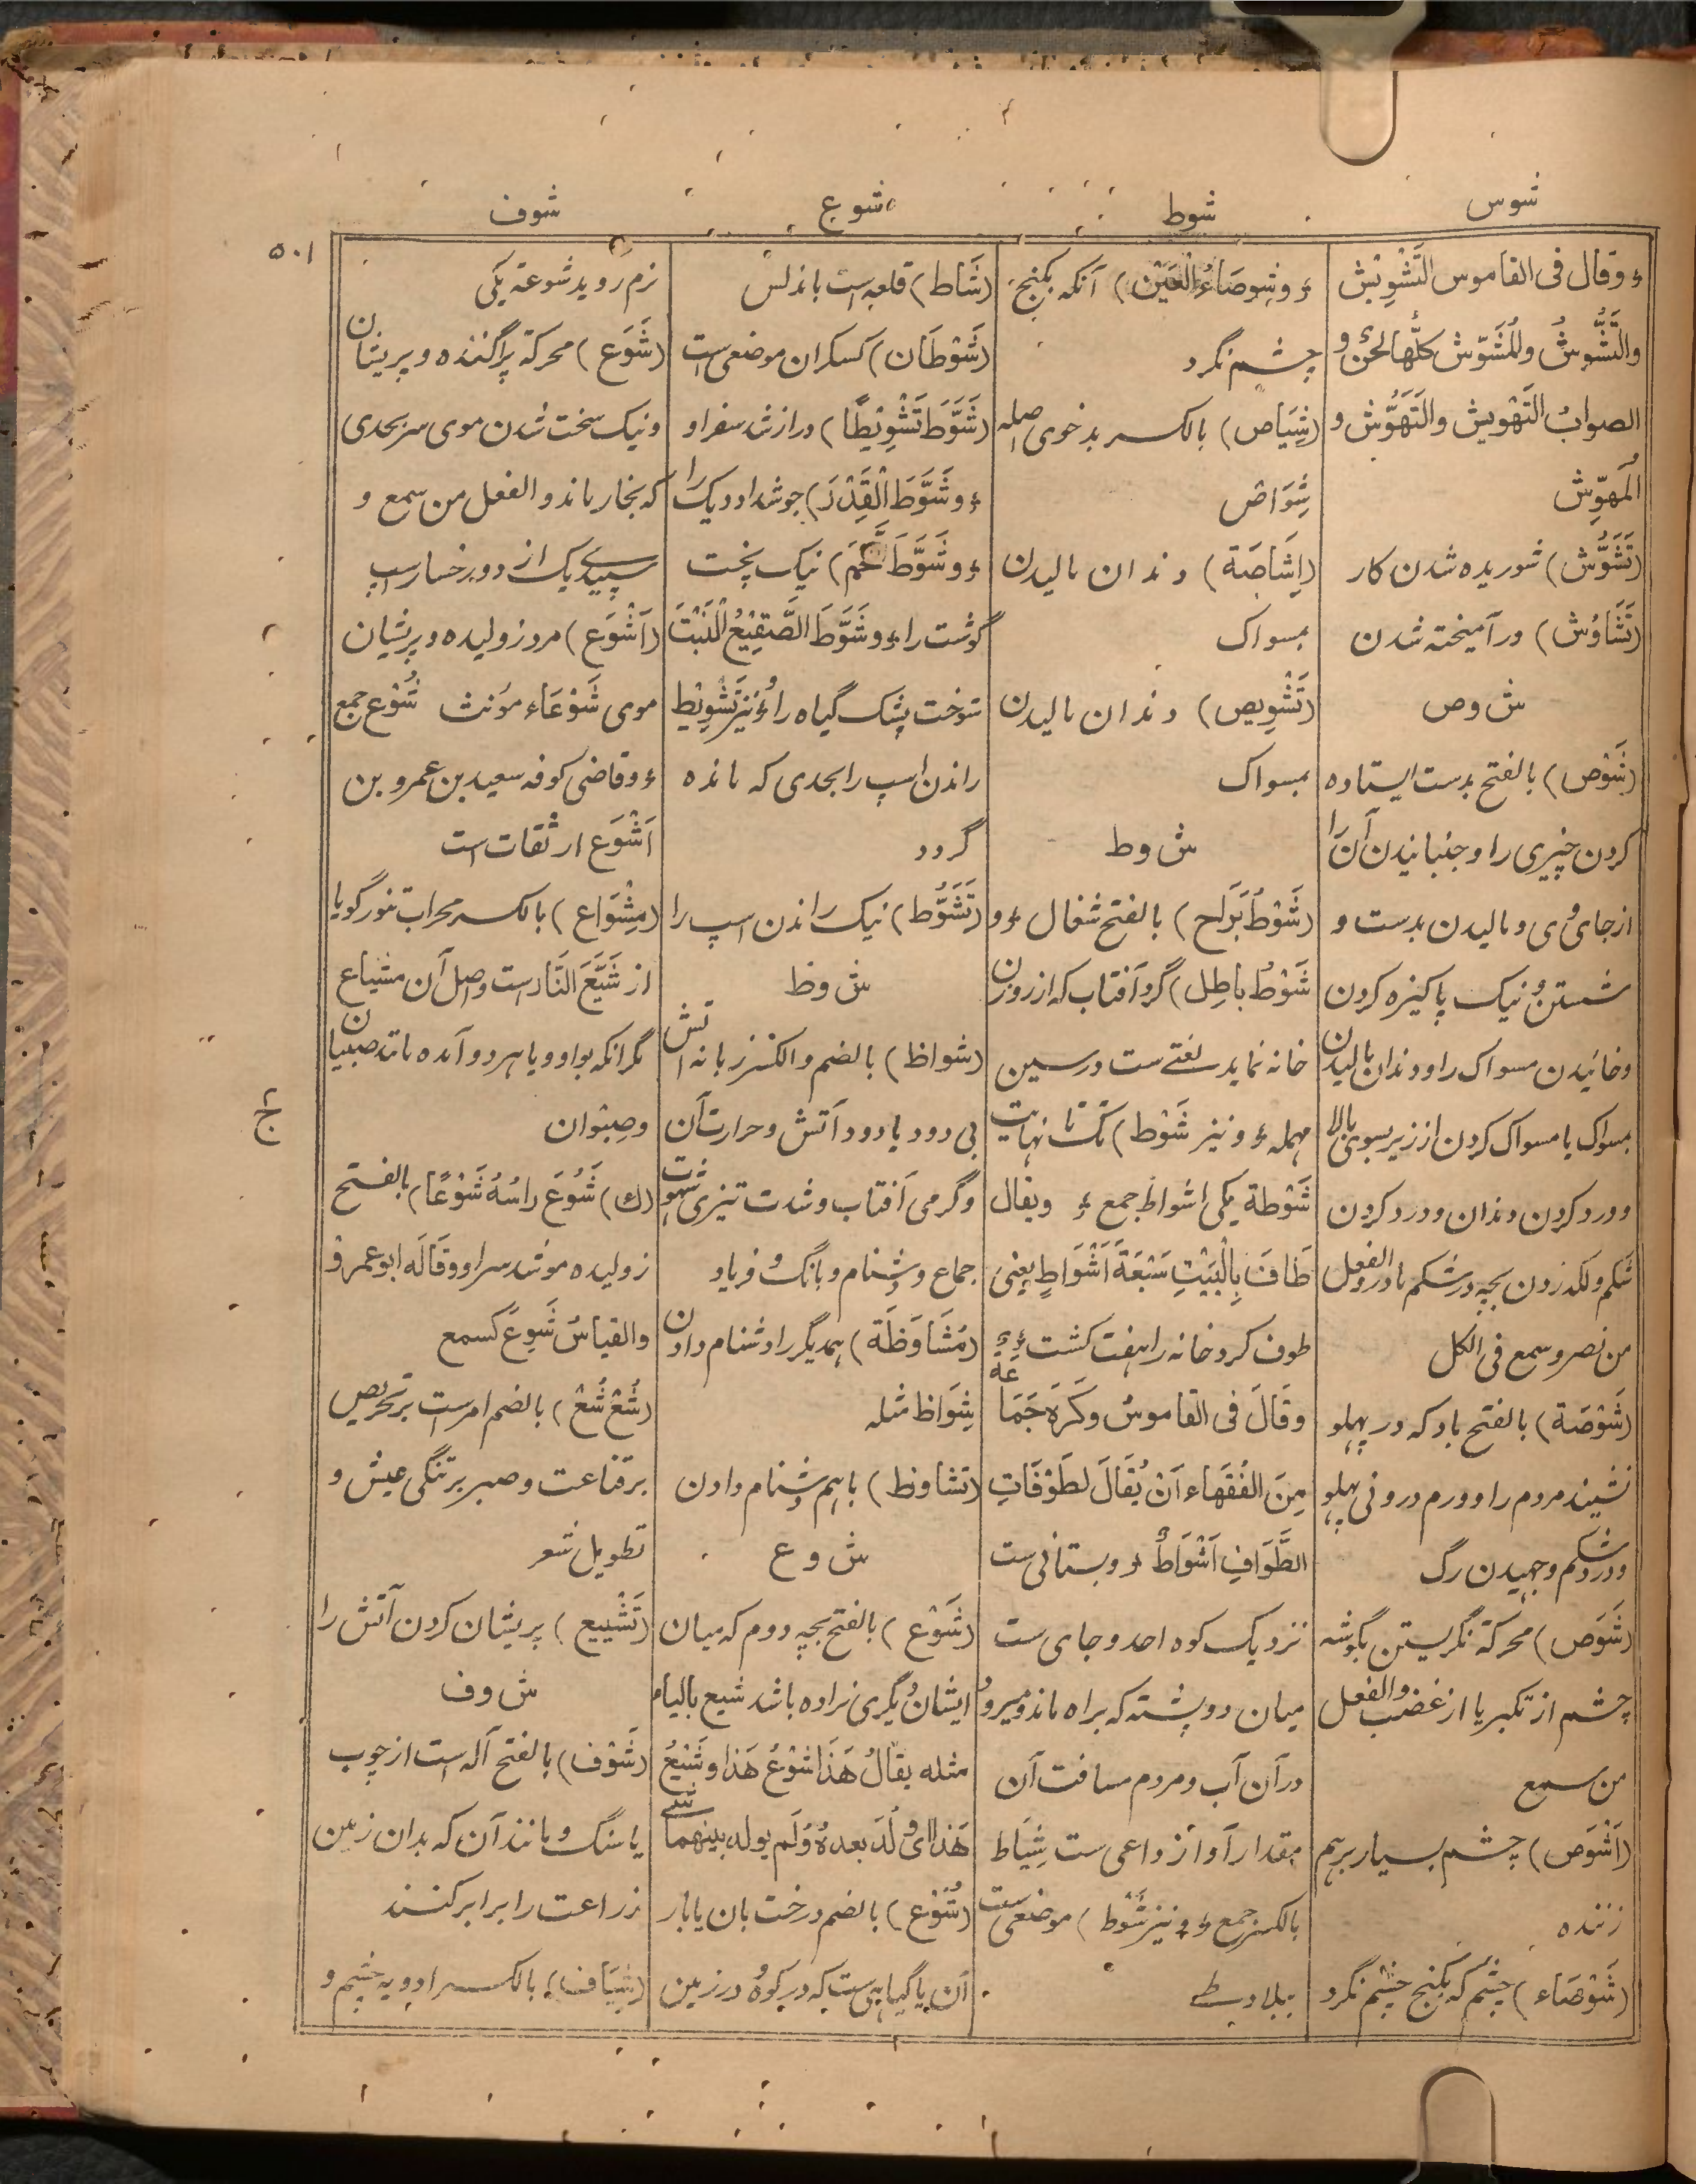 شوس
شوط
شوع
شوف
۵۰۱
ء وقال فى القاموس التَّشْوِيْش
والتَّشَّوُشُ والمُشَوّش كلُّها لحنٌ و
الصوابُ التَهْوِيش والتَهَوُّش و
المُهَوِّش
(تَشَوُّش) شوریده شدن کار
(تَشَاوُش) درآمیخته شدن
ش وص
(شَوْص) بالفتح بدست ایستاده
کردن چیزی را و جنبانیدن آن را
از جای وی و مالیدن بدست و
شستن و نیک پاکیزه کردن
وخائیدن مسواک را و دندان مالیدن
بمسواک یا مسواک کردن از زیر بسوی بالا
و درد کردن دندان و درد کردن
شکم و لکد زدن بچه در شکم مادر والفعل
من نصر وسمع فی الکل
(شَوْصَة) بالفتح باد که در پهلو
نشیند مردم را و ورم درونی پهلو
و درد شکم و جهیدن رگ
(شَوَص) محرکة نگریستن بگوشه
چشم از تکبر یا از غضب والفعل
من سمع
(اَشْوَص) چشم بسیار برهم
زننده
(شَوْصَاء) چشم که بکنج چشم نگرد
ء وشِوصَاءُ العَیْن) آنکه بکنج
چشم نگرد
(شِیَاص) بالکسر بدخوی اصله
شِوَاص
(اِشَاصَة) دندان مالیدن
بمسواک
(تَشْوِیص) دندان مالیدن
بمسواک
ش وط
(شَوْطُ بَرَاح) بالفتح شغال ء و
شَوْطُ باطِل) گرد آفتاب که از روزن
خانه نماید لغتے ست در سین
مهمله ء و نیز شَوْط) تگ تا نهایت
شَوْطة یکی اشواط جمع ء ویقال
طَافَ بِالْبَیْتِ سَبْعَةَ اَشْوَاطٍ یعنی
طوف کرد خانه را هفت گشت ء
وقَالَ فى القاموسُ وکَرِهَ جَمَاعة
مِنَ الفُقَهَاء اَنْ یُقَالَ لطَوْفَاتِ
الطَّوَافِ اَشْوَاطٌ ء و بستانی ست
نزدیک کوه احد و جای ست
میان دو پشته که براه ماند و میرود
در آن آب و مردم مسافت آن
مقدار آواز داعی ست شِیَاط
بالکسر جمع ء و نیز شَوْط) موضعی ست
ببلاد طے
(شَاط) قلعه است باندلس
(شَوْطَان) کسکران موضعی است
(شَوَّطَ تَشْوِیْطًا) دراز شد سفر او
ء وشَوَّطَ الْقِدْرَ) جوشداد دیک را
ء وشَوَّطَ للَّحْمَ) نیک پخت
گوشت را ء وشَوَّطَ الصَّقِیْعُ النَّبْتَ
سوخت پشک گیاه را ء و نیز تَشْوِیْط
راندن اسپ را بحدی که مانده
گردد
(تَشَوُّط) نیک راندن اسپ را
ش وظ
(شواظ) بالضم والکسر زبانه آتش
بی دود یا دود آتش و حرارت آن
وگرمی آفتاب و شدت تیزی شهوت
جماع و دشنام و بانگ و فریاد
(مُشَاوَظَة) همدیگر را دشنام دادن
شِوَاظ مثله
(تشاوظ) باهم دشنام دادن
ش و ع
(شَوْع) بالفتح بچه دوم که میان
ایشان دیگری نزاده باشد شیع بالیاء
مثله یقالُ هَذَا شَوْعُ هَذا وشَیْعُ
هَذا ای وُلِدَ بعدهُ وَلَم یولد بینهما شے
(شُوْع) بالضم درخت بان یا بار
آن یا گیاهی ست که در کوه و در زمین
نرم روید شوعة یکی
(شَوَع) محرکة پراگنده و پریشان
و نیک سخت شدن موی سر بحدی
که بخار ماند والفعل من سمع و
سپیدے یک از دو رخسار اسپ
(اَشْوَع) مرد ژولیده و پریشان
موی شَوْعَاء مؤنث شُوْع جمع
ء وقاضی کوفه سعید بن عمرو بن
اَشْوَع از ثقات است
(مِشْوَاع) بالکسر محراب تنور گویا
از شَیَّعَ النَّار است واصل آن مشیاع
مگر آنکه بواو ویا هر دو آمده مانند صبیان
وصِبْوان
(ك) شَوُعَ راسُهُ شَوْعًا) بالفتح
ژولیده مو شد سر او وقَالَه ابو عمرو
والقیاسُ شَوِعَ کسمع
(شُعْ شُعْ) بالضم امرست بر تحریص
بر قناعت و صبر بر تنگی عیش و
تطویل شعر
(تَشْیِیع) پریشان کردن آتش را
ش وف
(شَوْف) بالفتح آله است از چوب
یا سنگ و مانند آن که بدان زمین
زراعت را برابر کنند
(شِیَاف) بالکسر ادویه چشم و